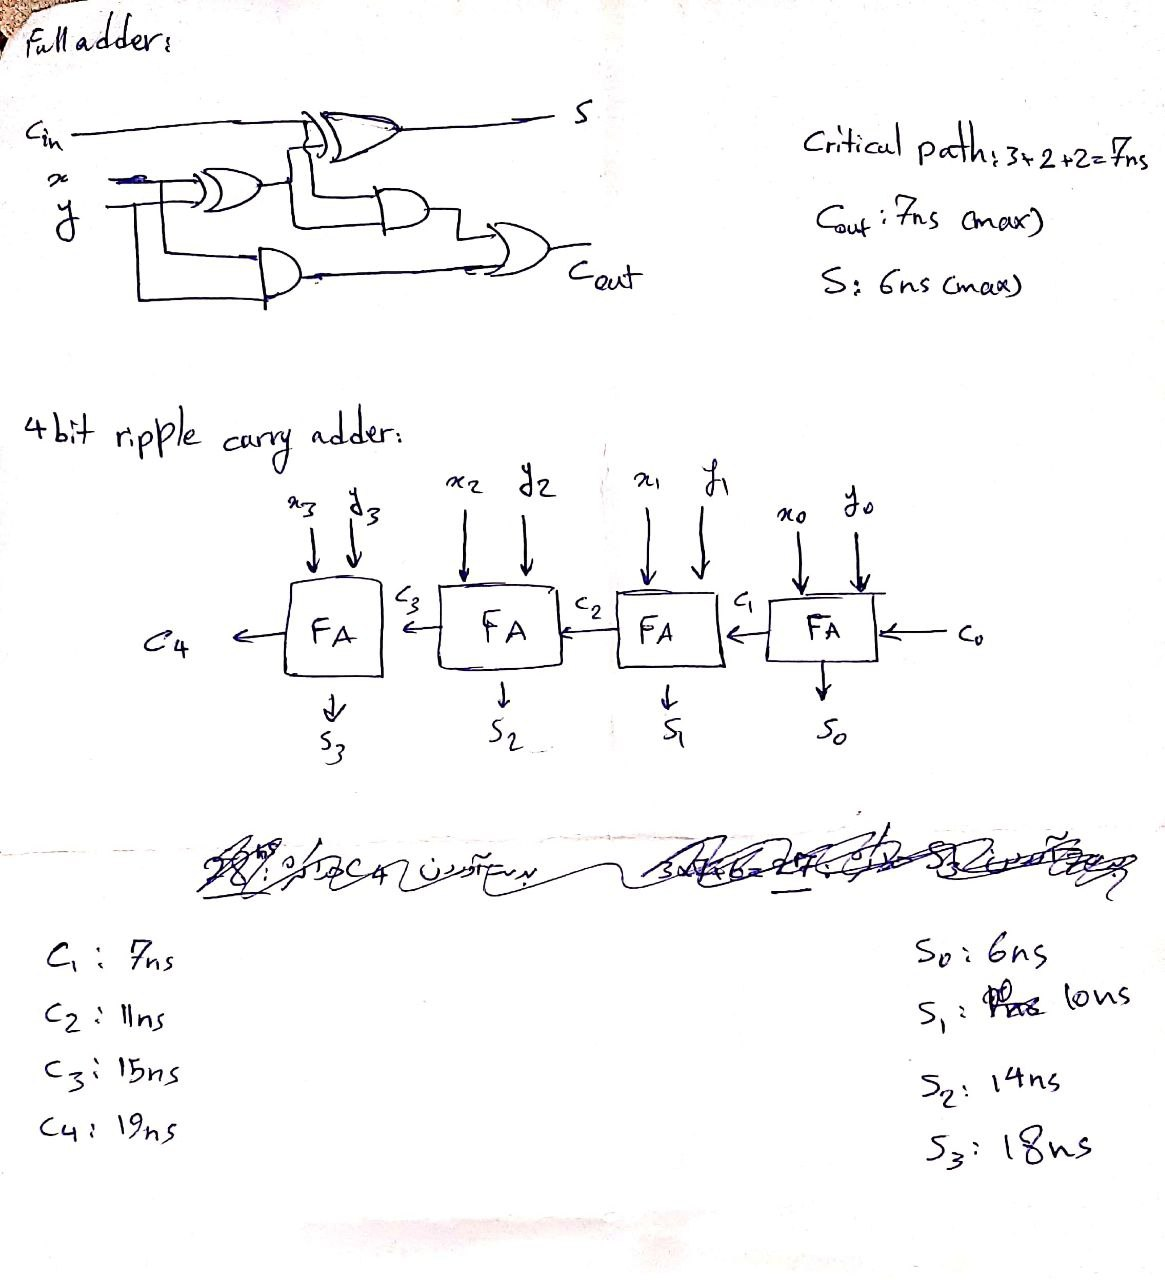 Full adder:
Cin
S
x
y
Cout
Critical path: 3+2+2=7ns
Cout: 7ns (max)
S: 6ns (max)
4 bit ripple carry adder:
x3 y3 x2 y2 x1 y1 x0 y0
C4 FA C3 FA C2 FA C1 FA C0
S3 S2 S1 S0
بدست آوردن C4
C1: 7ns
C2: 11ns
C3: 15ns
C4: 19ns
S0: 6ns
S1: 10ns
S2: 14ns
S3: 18ns